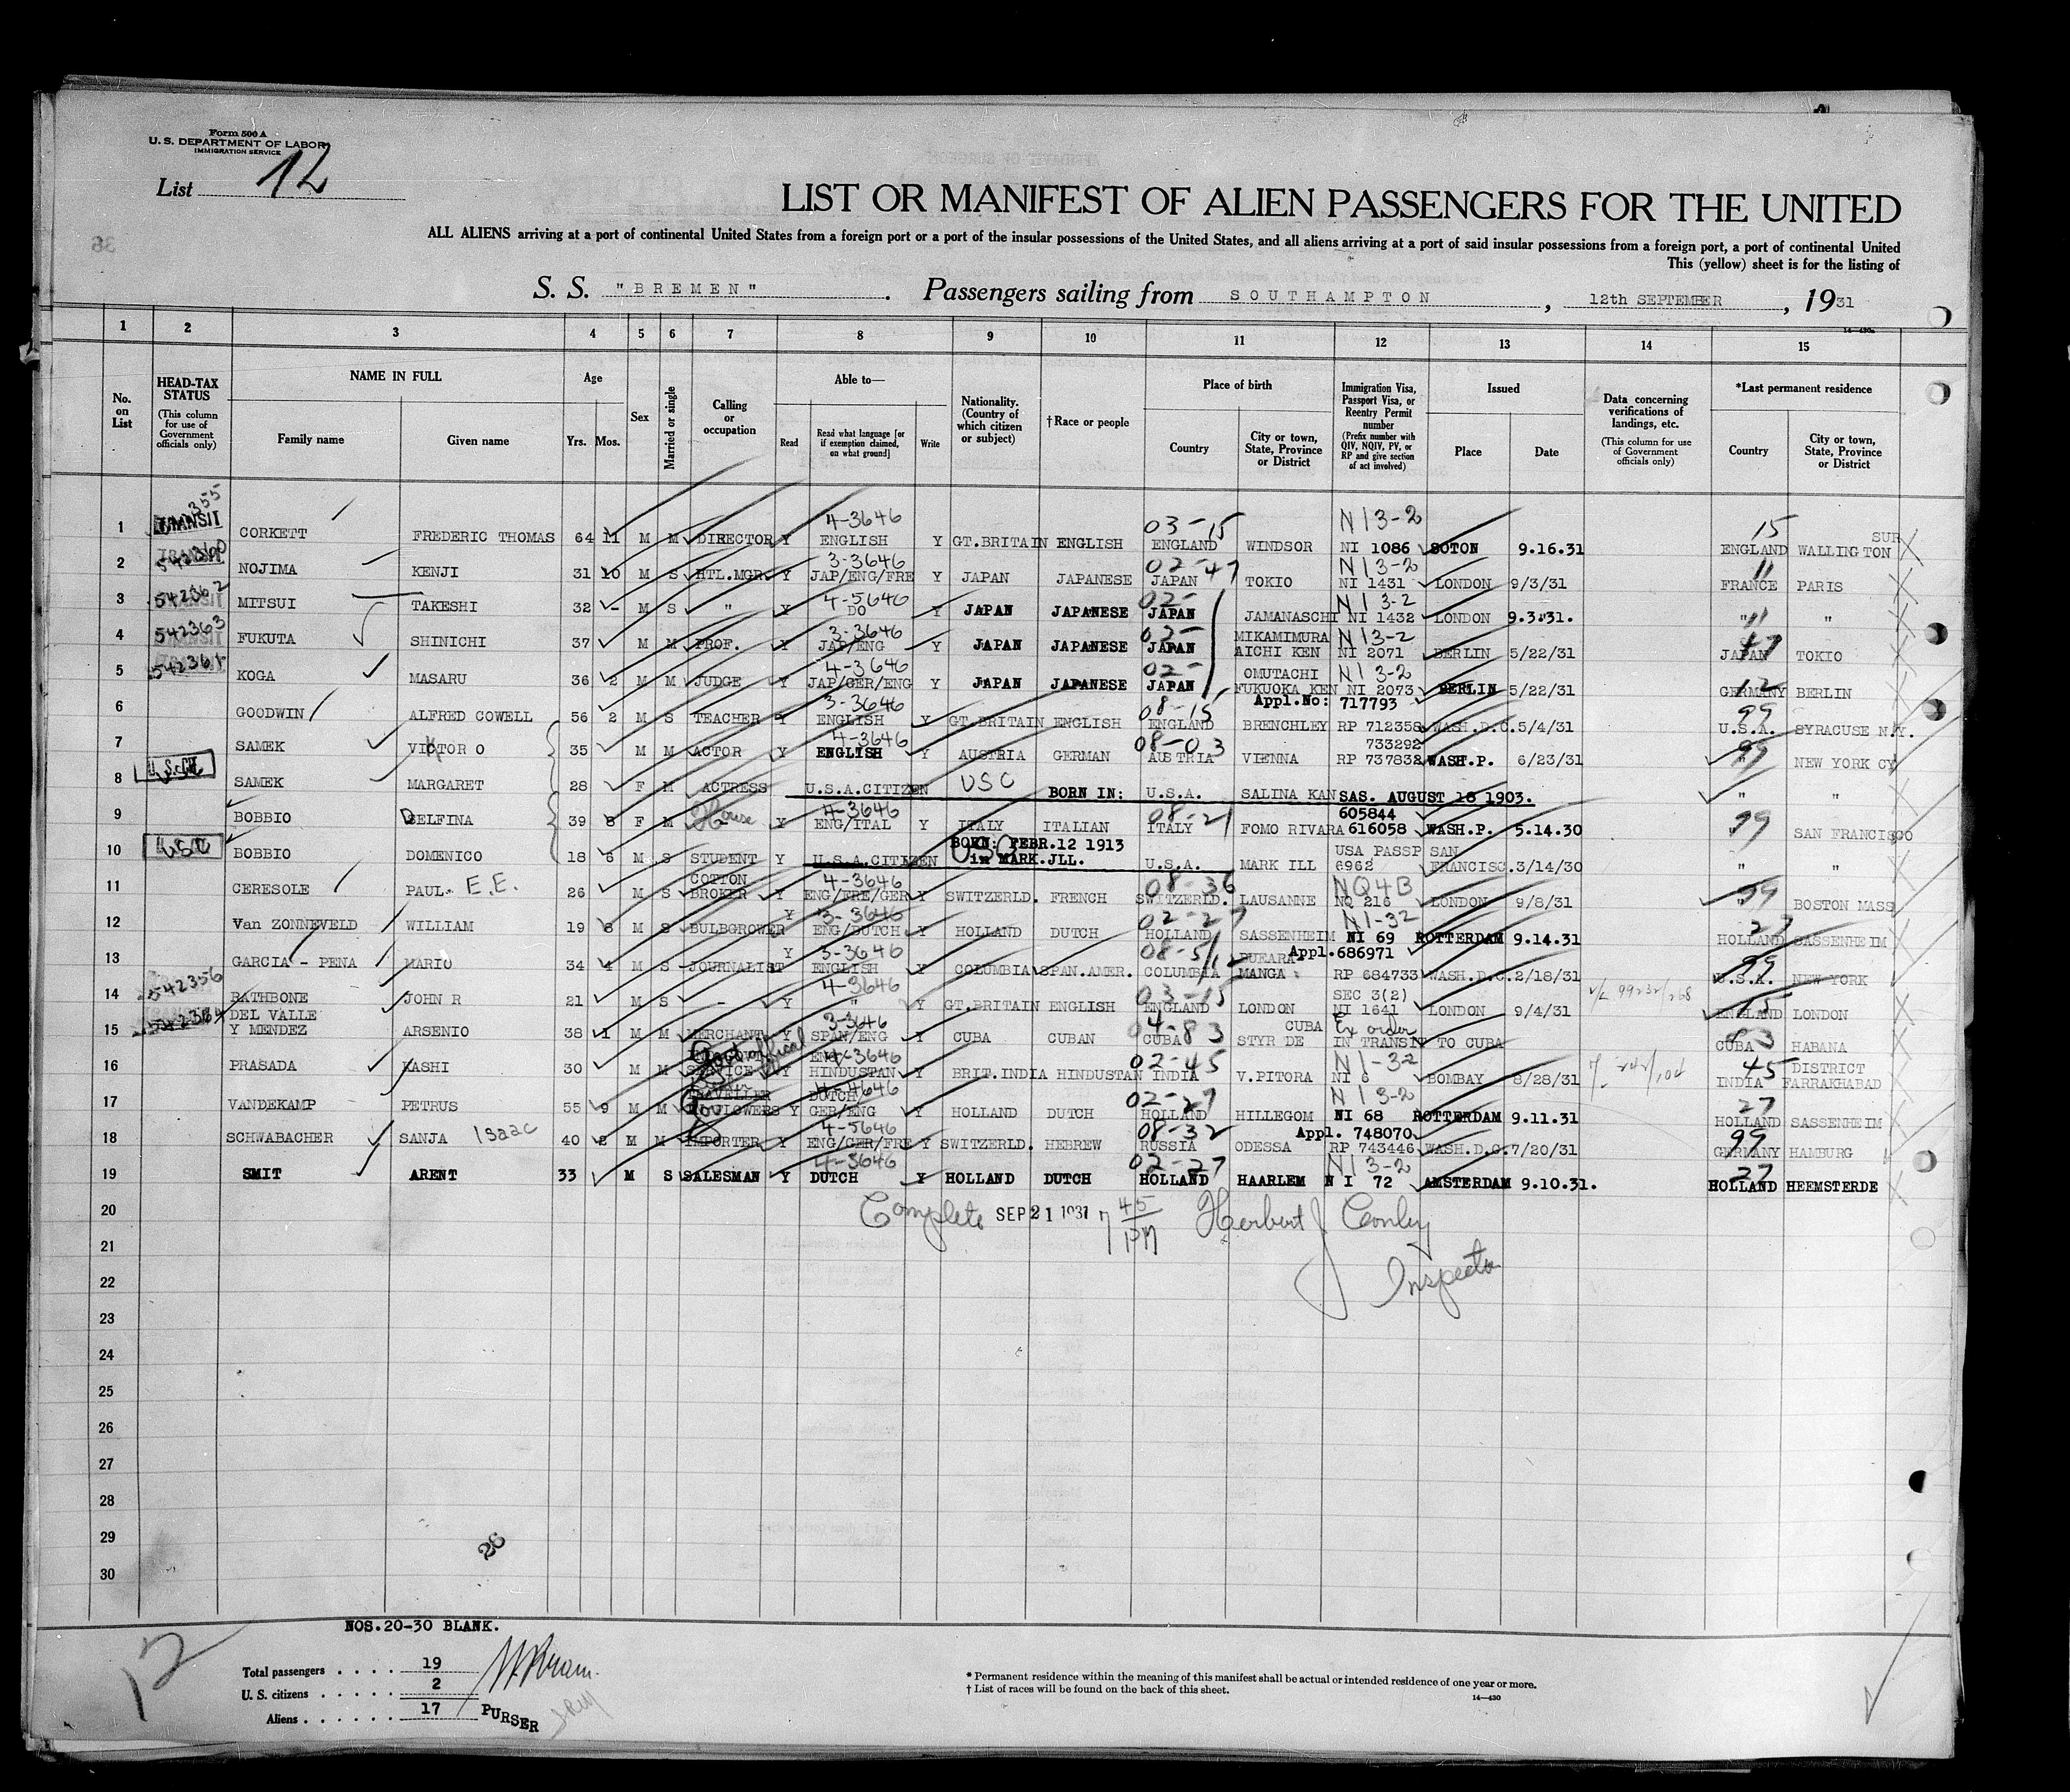 Form 500 A
U. S. DEPARTMENT OF LABOR
IMMIGRATION SERVICE
List 12
LIST OR MANIFEST OF ALIEN PASSENGERS FOR THE UNITED
ALL ALIENS arriving at a port of continental United States from a foreign port or a port of the insular possessions of the United States, and all aliens arriving at a port of said insular possessions from a foreign port, a port of continental United
This (yellow) sheet is for the listing of
S. S. "BREMEN" . Passengers sailing from SOUTHAMPTON , 12th SEPTEMBER , 1931
14-430a
1 2 3 4 5 6 7 8 9 10 11 12 13 14 15
No. on List
HEAD-TAX STATUS (This column for use of Government officials only)
NAME IN FULL Family name Given name
Age Yrs. Mos.
Sex
Married or single
Calling or occupation
Able to— Read Read what language [or if exemption claimed, on what ground] Write
Nationality. (Country of which citizen or subject)
† Race or people
Place of birth Country City or town, State, Province or District
Immigration Visa, Passport Visa, or Reentry Permit number (Prefix number with QIV, NQIV, PV, or RP and give section of act involved)
Issued Place Date
Data concerning verifications of landings, etc. (This column for use of Government officials only)
*Last permanent residence Country City or town, State, Province or District
1 TRANSIT CORKETT FREDERIC THOMAS 64 11 M M DIRECTOR Y 4-3646 ENGLISH Y GT.BRITAIN ENGLISH 03-15 ENGLAND WINDSOR N13-2 NI 1086 SOTON 9.16.31 15 ENGLAND SUR WALLINGTON
2 TRANSIT 542360 NOJIMA KENJI 31 10 M S HTL.MGR. Y 3-3646 JAP/ENG/FRE Y JAPAN JAPANESE 02-47 JAPAN TOKIO N13-2 NI 1431 LONDON 9/3/31 11 FRANCE PARIS
3 542362 MITSUI TAKESHI 32 - M S " Y 4-5646 DO Y JAPAN JAPANESE 02- JAPAN JAMANASCHI N13-2 NI 1432 LONDON 9.3.31. 11 " "
4 542363 FUKUTA SHINICHI 37 M M PROF. Y 3-3646 JAP/ENG Y JAPAN JAPANESE 02- JAPAN MIKAMIMURA AICHI KEN N13-2 NI 2071 BERLIN 5/22/31 47 JAPAN TOKIO
5 542361 KOGA MASARU 36 2 M M JUDGE Y 4-3646 JAP/GER/ENG Y JAPAN JAPANESE 02- JAPAN OMUTACHI FUKUOKA KEN N13-2 NI 2073 BERLIN 5/22/31 12 GERMANY BERLIN
6 GOODWIN ALFRED COWELL 56 2 M S TEACHER Y 3-3646 ENGLISH Y GT.BRITAIN ENGLISH 08-15 ENGLAND BRENCHLEY Appl.No: 717793 RP 712358 WASH.D.C. 5/4/31 99 U.S.A. SYRACUSE N.Y.
7 SAMEK VICTOR O 35 M M ACTOR Y 4-3646 ENGLISH Y AUSTRIA GERMAN 08-03 AUSTRIA VIENNA 733292 RP 737832 WASH.P. 6/23/31 99 NEW YORK CY
8 SAMEK MARGARET 28 F M ACTRESS U.S.A.CITIZEN USC BORN IN: U.S.A. SALINA KANSAS. AUGUST 18 1903. " "
9 BOBBIO DELFINA 39 8 F M House Y 4-3646 ENG/ITAL Y ITALY ITALIAN 08-21 ITALY FOMO RIVARA 605844 616058 WASH.P. 5.14.30 99 SAN FRANCISCO
10 USC BOBBIO DOMENICO 18 6 M S STUDENT Y U.S.A.CITIZEN USC BORN: FEBR.12 1913 in MARK.JLL. U.S.A. MARK ILL USA PASSP 6962 SAN FRANCISC. 3/14/30 " "
11 CERESOLE PAUL. E.E. 26 M S COTTON BROKER Y 4-3646 ENG/FRE/GER Y SWITZERLD. FRENCH 08-36 SWITZERLD. LAUSANNE NQ4B NQ 216 LONDON 9/8/31 99 BOSTON MASS
12 Van ZONNEVELD WILLIAM 19 6 M S BULBGROWER Y 3-3646 ENG/DUTCH Y HOLLAND DUTCH 02-27 HOLLAND SASSENHEIM N1-32 NI 69 ROTTERDAM 9.14.31 27 HOLLAND SASSENHEIM
13 GARCIA - PENA MARIO 34 4 M S JOURNALIST Y 3-3646 ENGLISH Y COLUMBIA SPAN.AMER. 08-51 COLUMBIA MANGA Appl.686971 RP 684733 WASH.D.C. 2/18/31 99 U.S.A. NEW YORK
14 542356 RATHBONE JOHN R 21 M S - Y 4-3646 " Y GT.BRITAIN ENGLISH 03-15 ENGLAND LONDON SEC 3(2) NI 1641 LONDON 9/4/31 15 ENGLAND LONDON
15 DEL VALLE Y MENDEZ ARSENIO 38 1 M M MERCHANT Y 3-3646 SPAN/ENG Y CUBA CUBAN 04-83 CUBA CUBA STYR DE Ex order IN TRANSIT TO CUBA 83 CUBA HABANA
16 PRASADA KASHI 30 M M SERVICE Y 4-3646 HINDUSTAN Y BRIT.INDIA HINDUSTAN 02-45 INDIA V.PITORA N1-32 NI 6 BOMBAY 8/28/31 45 INDIA DISTRICT FARRAKHABAD
17 VANDEKAMP PETRUS 55 9 M M TRAVELLER FLOWERS Y 4-4646 DUTCH GER/ENG Y HOLLAND DUTCH 02-27 HOLLAND HILLEGOM N13-2 NI 68 ROTTERDAM 9.11.31 27 HOLLAND SASSENHEIM
18 SCHWABACHER SANJA Isaac 40 8 M M IMPORTER Y 4-5646 ENG/GER/FRE Y SWITZERLD. HEBREW 08-32 RUSSIA ODESSA Appl. 748070 RP 743446 WASH.D.C. 7/20/31 99 GERMANY HAMBURG
19 SMIT ARENT 33 M S SALESMAN Y 4-3646 DUTCH Y HOLLAND DUTCH 02-27 HOLLAND HAARLEM N13-2 N I 72 AMSTERDAM 9.10.31. 27 HOLLAND HEEMSTERDE
20 Complete SEP 21 1931 7 45 PM Herbert J Conley
21
Inspector
22
23
24
25
26
27
28
29
30
26
NOS.20-30 BLANK.
12
Total passengers . . . . 19
U. S. citizens . . . . . 2
Aliens . . . . . . 17
PURSER
* Permanent residence within the meaning of this manifest shall be actual or intended residence of one year or more.
† List of races will be found on the back of this sheet.
14—430